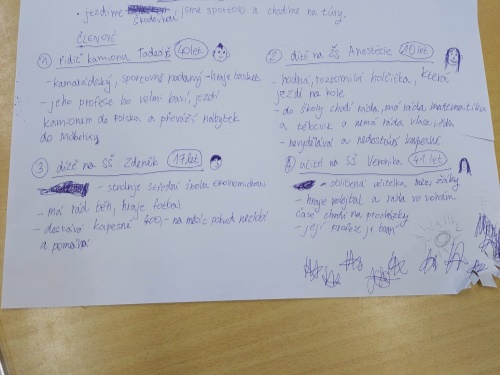 • jezdíme škodovkou, jsme sportovci a chodíme na túry.
ČLENOVÉ
① řidič kamionu Tadeáš 40 let
- kamarádský, sportovně nadaný - hraje basket
- jeho profese ho velmi baví, jezdí
kamionem do Polska a převáží nábytek
do Möbelixu
② dítě na ZŠ Anastázie 10 let
- hodná, roztomilá holčička, která
jezdí na kole
- do školy chodí ráda, má ráda matematiku
a tělocvik a nemá ráda vlastivědu
- nevydělává a nedostává kapesné
③ dítě na SŠ Zdeněk 17 let
- studuje střední školu ekonomickou
- má rád běh, hraje fotbal
- dostává kapesné 400,- na měsíc pokud nezlobí
a pomáhá
④ učitel na SŠ Veronika 41 let
- oblíbená učitelka mezi žáky
- hraje volejbal a ráda ve volném
čase chodí na procházky
- její profese ji baví